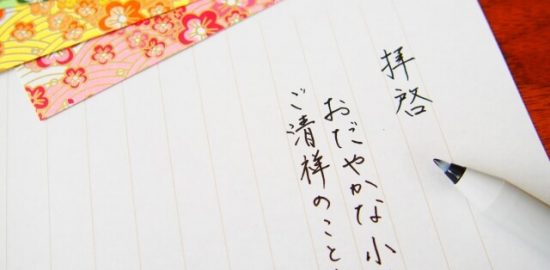 拝啓
おだやかな小
ご清祥のこと